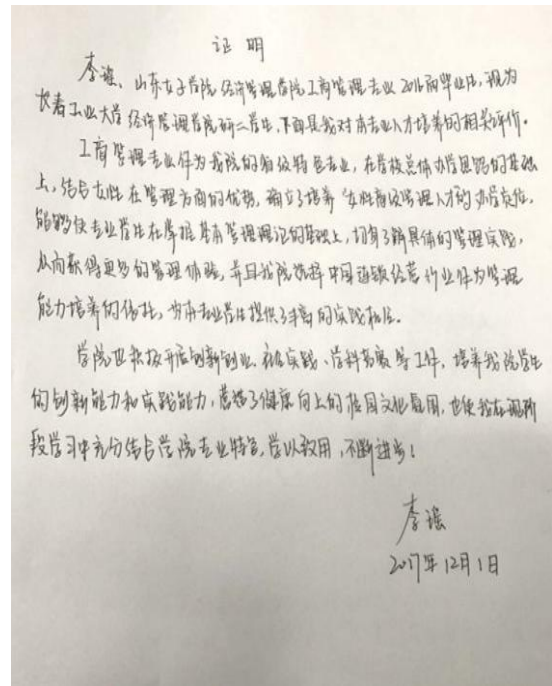 证 明
李谣、山东女子学院经济管理学院工商管理专业2016届毕业生,现为
长春工业大学经济管理学院研二学生,下面是我对本专业人才培养的相关评价。
工商管理专业作为我院的省级特色专业,在学校总体办学思路的基础
上,结合女性在管理方面的优势,确立了培养“女性高级管理人才”的办学定位,
能够使专业学生在掌握基本管理理论的基础上,切身了解具体的管理实践,
从而获得更多的管理体验,并且我院选择中国连锁经营行业作为管理
能力培养的依托,为本专业学生提供了丰富的实践机会。
学院也积极开展创新创业、社会实践、学科竞赛等工作,培养我院学生
的创新能力和实践能力,营造了健康向上的校园文化氛围,也使我在现阶
段学习中充分结合学院专业特色,学以致用,不断进步!
李谣
2017年12月1日